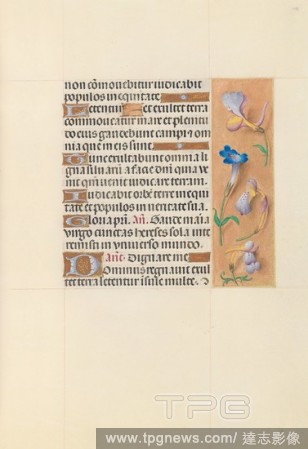 non cōmovebitur iudicabit
populos in equitate
Letentur celi et exultet terra
commoveatur mare et plenitu
do eius gaudebunt campi et om
nia que in eis sunt
Tunc exultabunt omnia li
gna silvarū a facie dn̄i quia ve
nit qm̄ venit iudicare terram
Iudicabit orbē terre in equi
tate et populos in veritate sua
Gloria pr̄i. An̄. Gaude maria
virgo cunctas hereses sola inte
remisti in vniverso mundo.
An̄e. Dignare me
Dominus regnavit exul
tet terra letentur insule multe.
TPG
www.tpgnews.com/ 達志影像